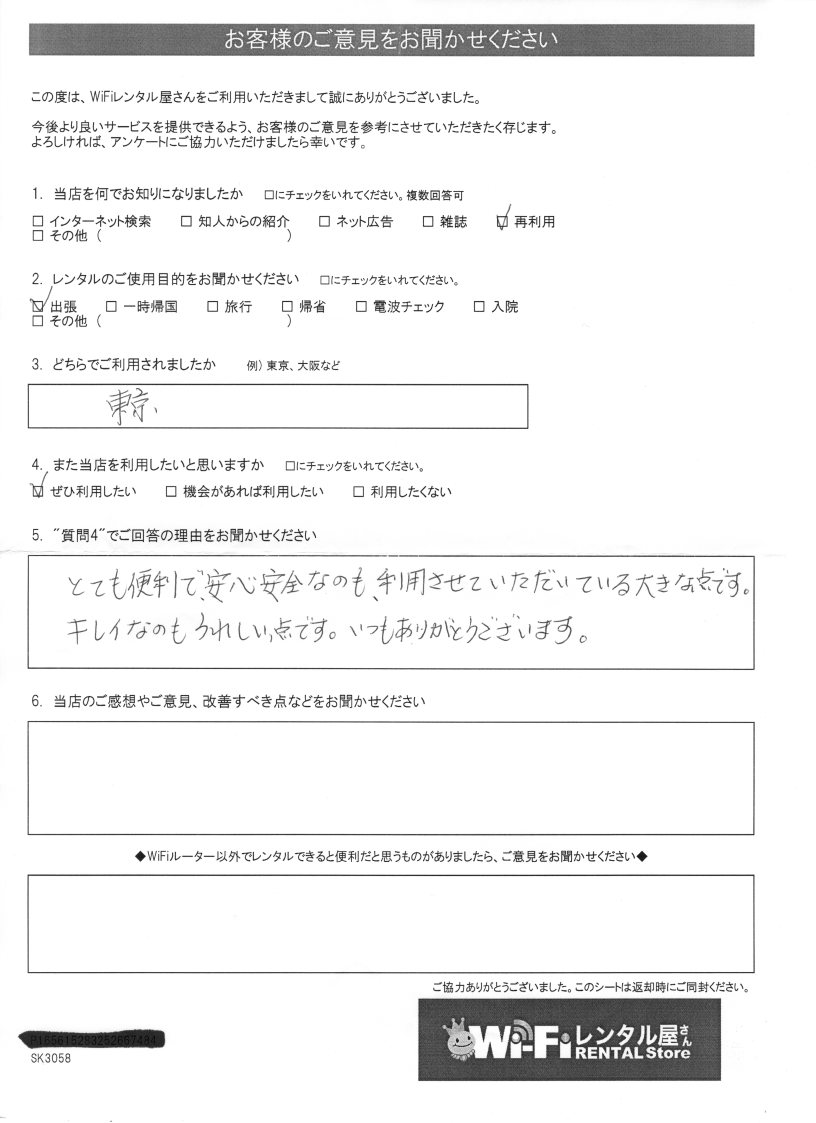 お客様のご意見をお聞かせください
この度は、WiFiレンタル屋さんをご利用いただきまして誠にありがとうございました。
今後より良いサービスを提供できるよう、お客様のご意見を参考にさせていただきたく存じます。
よろしければ、アンケートにご協力いただけましたら幸いです。
1. 当店を何でお知りになりましたか □にチェックをいれてください。複数回答可
□ インターネット検索 □ 知人からの紹介 □ ネット広告 □ 雑誌 ☑ 再利用
□ その他 ( )
2. レンタルのご使用目的をお聞かせください □にチェックをいれてください。
☑ 出張 □ 一時帰国 □ 旅行 □ 帰省 □ 電波チェック □ 入院
□ その他 ( )
3. どちらでご利用されましたか 例) 東京、大阪など
東京、
4. また当店を利用したいと思いますか □にチェックをいれてください。
☑ ぜひ利用したい □ 機会があれば利用したい □ 利用したくない
5. "質問4"でご回答の理由をお聞かせください
とても便利で、安心安全なのも、利用させていただいている大きな点です。
キレイなのもうれしい点です。いつもありがとうございます。
6. 当店のご感想やご意見、改善すべき点などをお聞かせください
◆WiFiルーター以外でレンタルできると便利だと思うものがありましたら、ご意見をお聞かせください◆
ご協力ありがとうございました。このシートは返却時にご同封ください。
SK3058
Wi-Fiレンタル屋さん
RENTAL Store